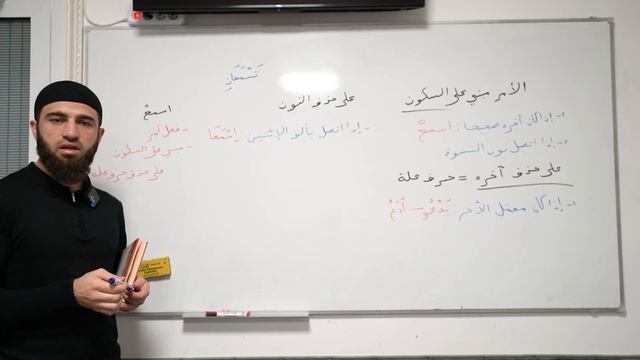 الأمر مبني على السكون
١- إذا كان آخره صحيحا: اسمعْ
٢- إذا اتصل بنون النسوة
على حذف آخره = حرف علة
١- إذا كان معتل الآخر: يَدْعُو - اُدْعُ
تَسْمَعَانِ
على حذف النون
- إذا اتصل بألف الإثنين: اِسْمَعَا
اسمعْ
- فعل أمر
- مبني على السكون
على حذف حرف علة